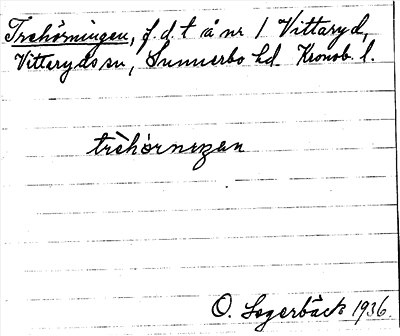 Trehörningen, f.d. t å nr 1 Vittaryd,
Vittaryds sn, Sunnerbo hd Kronob. l.
trèhörnıŋen
O. Sagerbäck 1936.